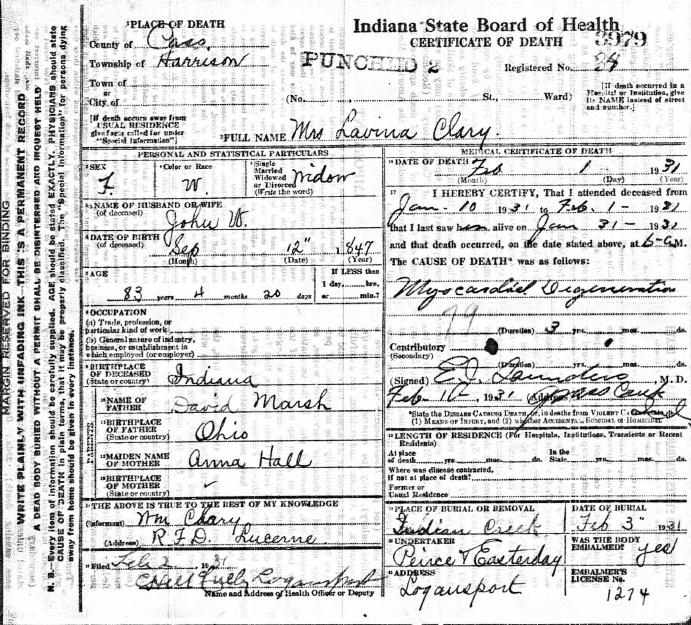 MARGIN RESERVED FOR BINDING
WRITE PLAINLY WITH UNFADING INK—THIS IS A PERMANENT RECORD
A DEAD BODY BURIED WITHOUT A PERMIT SHALL BE DISINTERRED AND INQUEST HELD
N. B.—Every item of information should be carefully supplied. AGE should be stated EXACTLY. PHYSICIANS should state
CAUSE OF DEATH in plain terms, that it may be properly classified. The "Special Information" for persons dying
away from home should be given in every instance.
PLACE OF DEATH
County of Cass
Township of Harrison
Town of
or
City of
[If death occurs away from
USUAL RESIDENCE
give facts called for under
"Special Information"]
Indiana State Board of Health
CERTIFICATE OF DEATH
3979
PUNCHED 2
Registered No. 24
(No. St., Ward)
[If death occurred in a
Hospital or Institution, give
its NAME instead of street
and number.]
FULL NAME Mrs Lavina Clary.
PERSONAL AND STATISTICAL PARTICULARS
SEX F.
Color or Race W.
Single
Married
Widowed
or Divorced
(Write the word) Widow
NAME OF HUSBAND OR WIFE
(of deceased) John W.
DATE OF BIRTH
(of deceased) Sep 12" 1847
(Month) (Date) (Year)
AGE
83 years 4 months 20 days
If LESS than
1 day, hrs.
or min.?
OCCUPATION
(a) Trade, profession, or
particular kind of work
(b) General nature of industry,
business, or establishment in
which employed (or employer)
BIRTHPLACE
OF DECEASED
(State or country) Indiana
PARENTS
NAME OF
FATHER David Marsh
BIRTHPLACE
OF FATHER
(State or country) Ohio
MAIDEN NAME
OF MOTHER Anna Hall
BIRTHPLACE
OF MOTHER
(State or country) ✓
THE ABOVE IS TRUE TO THE BEST OF MY KNOWLEDGE
(Informant) Wm Clary
(Address) R.F.D. Lucerne
Filed Feb 2 1931
Logansport
Name and Address of Health Officer or Deputy
MEDICAL CERTIFICATE OF DEATH
DATE OF DEATH Feb 1 1931
(Month) (Day) (Year)
17 I HEREBY CERTIFY, That I attended deceased from
Jan - 10 1931 to Feb. 1 - 1931
that I last saw alive on Jan 31 - 1931
and that death occurred, on the date stated above, at 6- A.M.
The CAUSE OF DEATH* was as follows:
Myocardial Degeneration
(Duration) 3 yrs. mos. ds.
Contributory
(Secondary)
(Duration) yrs. mos. ds.
(Signed) M. D.
Feb 1931 (Address)
*State the DISEASE CAUSING DEATH, or, in deaths from VIOLENT CAUSES, state
(1) MEANS OF INJURY, and (2) whether ACCIDENTAL, SUICIDAL or HOMICIDAL
LENGTH OF RESIDENCE (For Hospitals, Institutions, Transients or Recent
Residents)
At place
of death, yrs. mos. ds.
In the
State, yrs. mos. ds.
Where was disease contracted,
if not at place of death?
Former or
Usual Residence
PLACE OF BURIAL OR REMOVAL
Indian Creek
DATE OF BURIAL
Feb 3" 1931
UNDERTAKER
Peirce & Easterday
WAS THE BODY
EMBALMED? yes
ADDRESS
Logansport
EMBALMER'S
LICENSE No.
1274